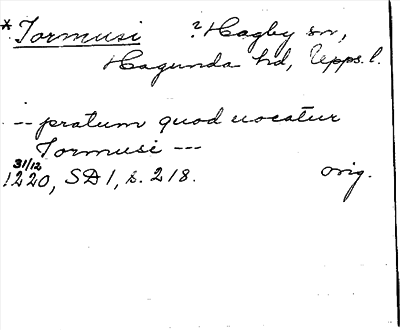 *Tormusi ?Hagby sn,
Hagunda hd, Upps. l.
-- pratum quod uocatur
Tormusi ---
31/12
1220, SD 1, s. 218. orig.